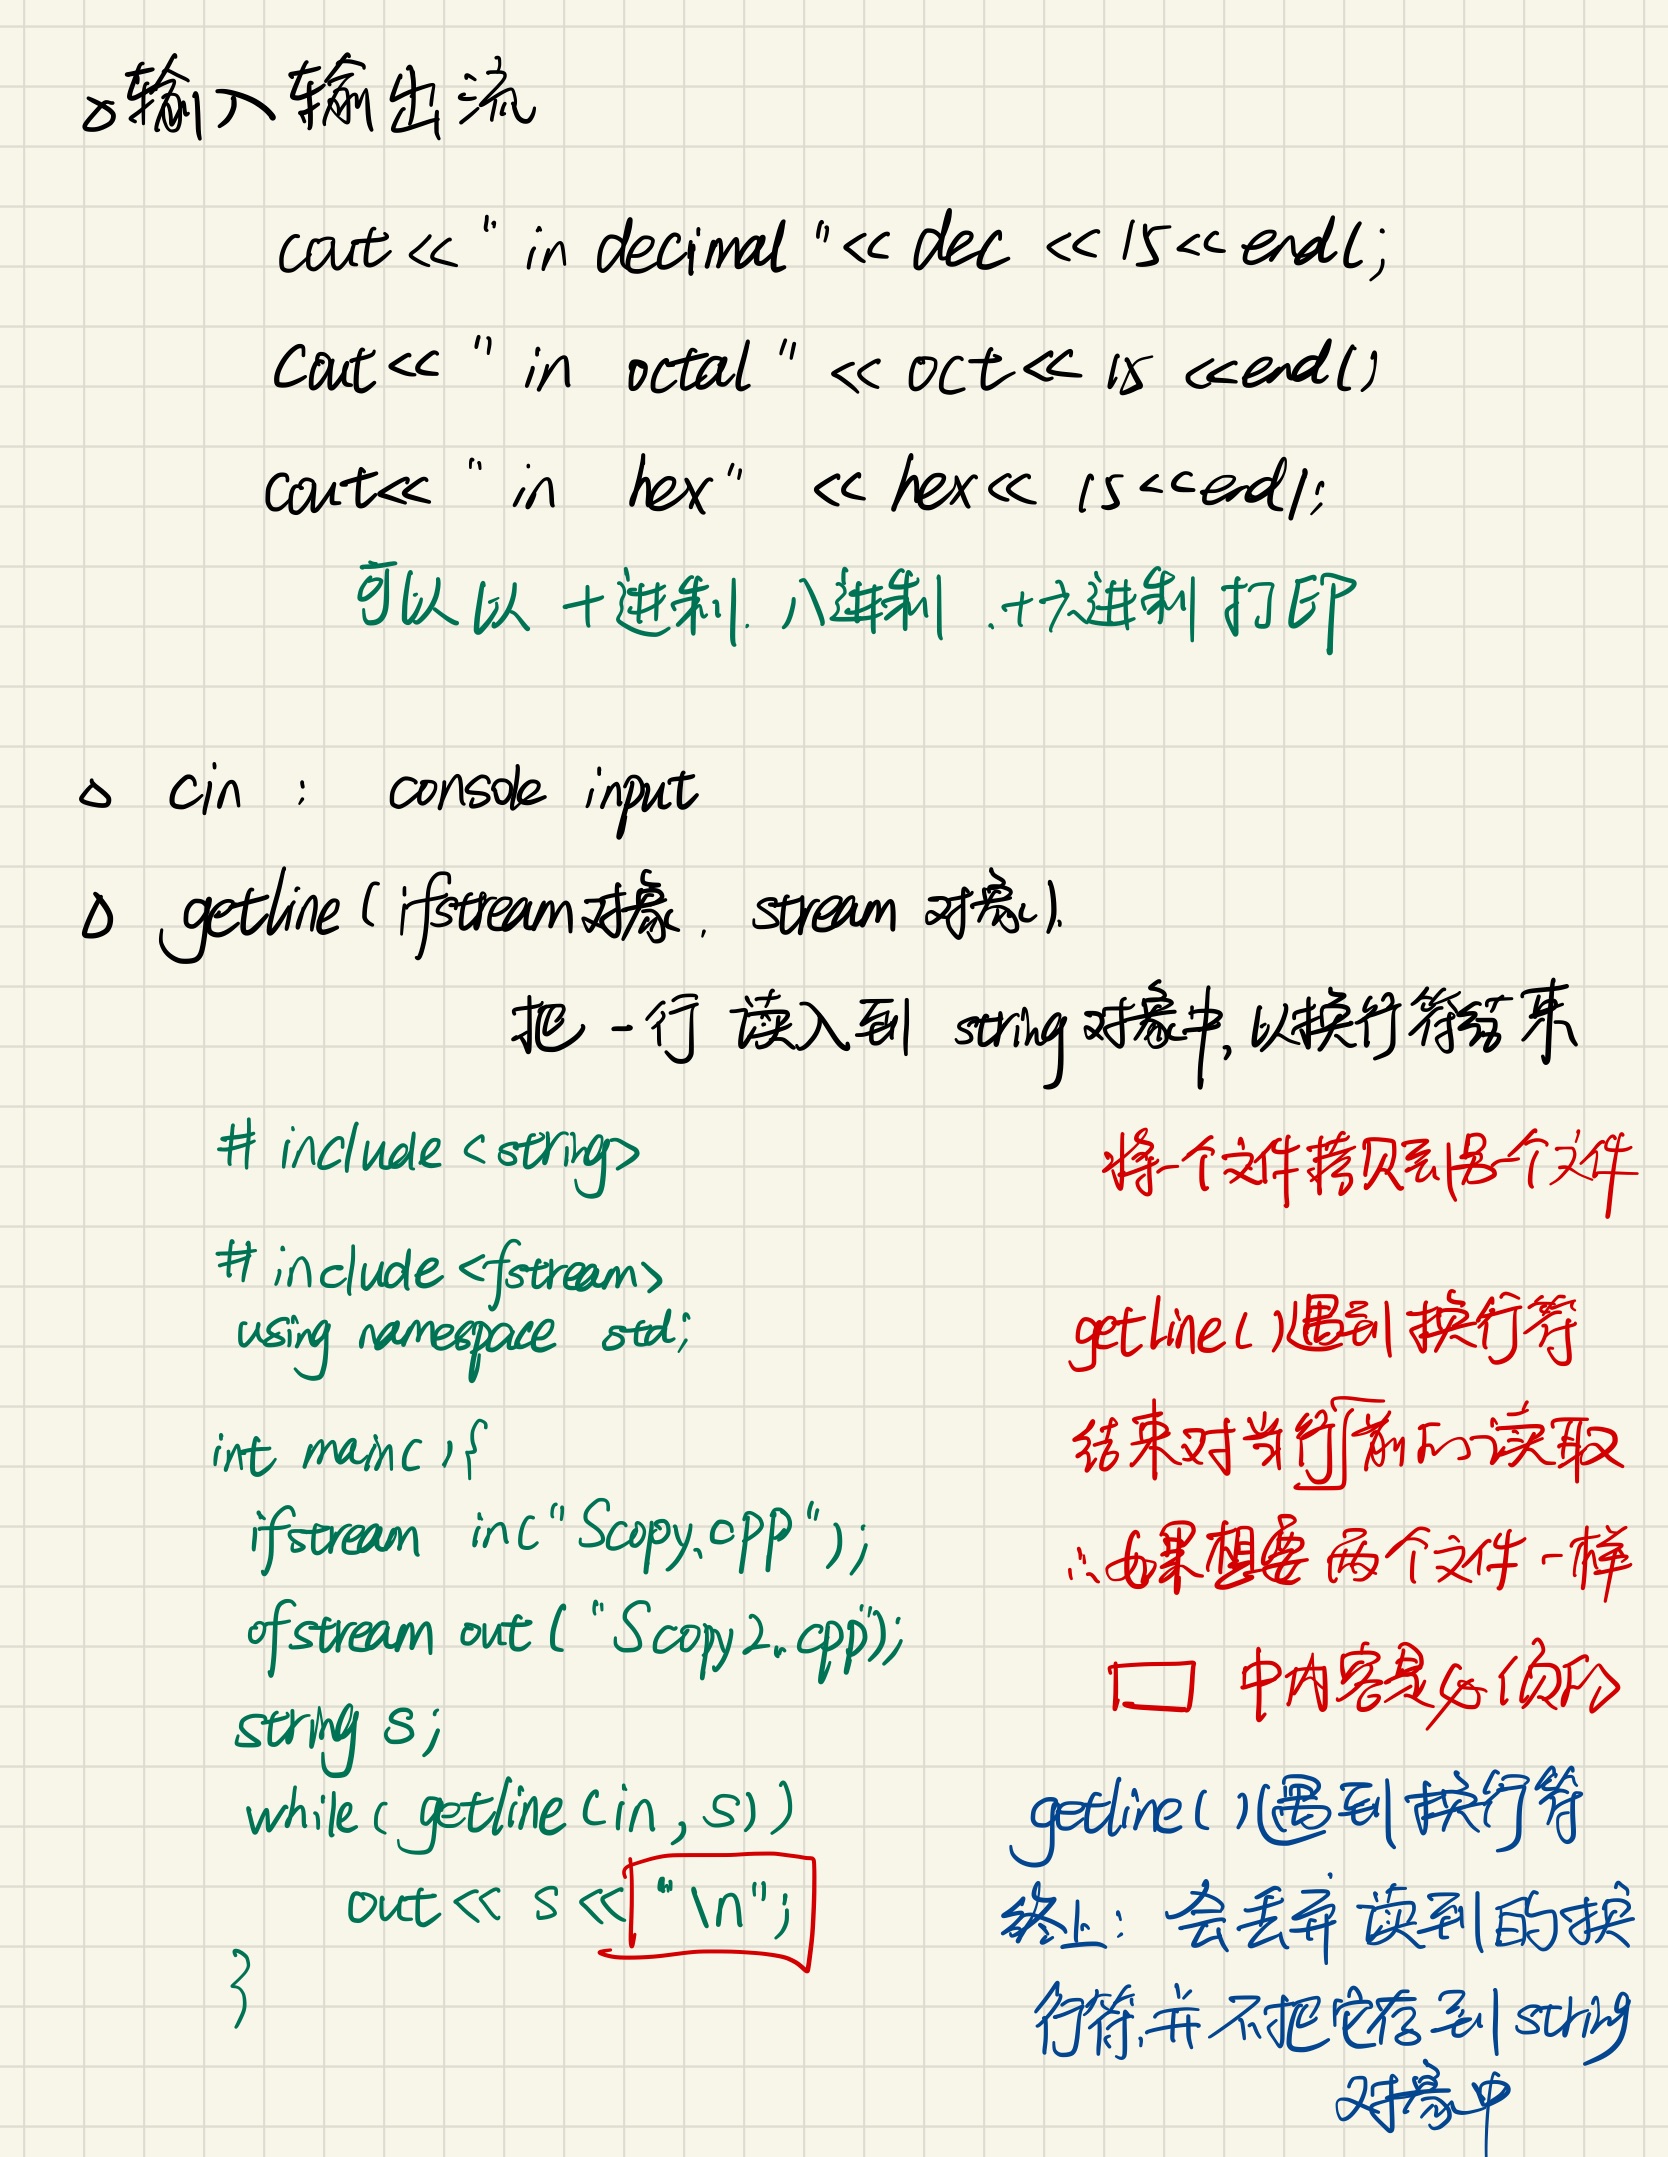 △输入输出流
cout << " in decimal " << dec << 15 << endl;
cout << " in octal " << oct << 15 << endl;
cout << " in hex" << hex << 15 << endl;
可以以 十进制、八进制、十六进制 打印
△ cin : console input
△ getline ( ifstream对象, stream 对象).
把一行 读入到 string 对象中, 以换行符结束
# include <string>
# include <fstream>
using namespace std;
int main( ) {
ifstream in("Scopy.cpp");
ofstream out ( "Scopy2.cpp");
string s;
while( getline (in, s))
out << s << "\n";
}
将一个文件拷贝到另一个文件
getline( )遇到换行符
结束对当行前的读取
∴如果想要 两个文件一样
□ 中内容是必须的
getline( )遇到换行符
终止: 会丢弃 读到的换
行符,并不把它存到string
对象中